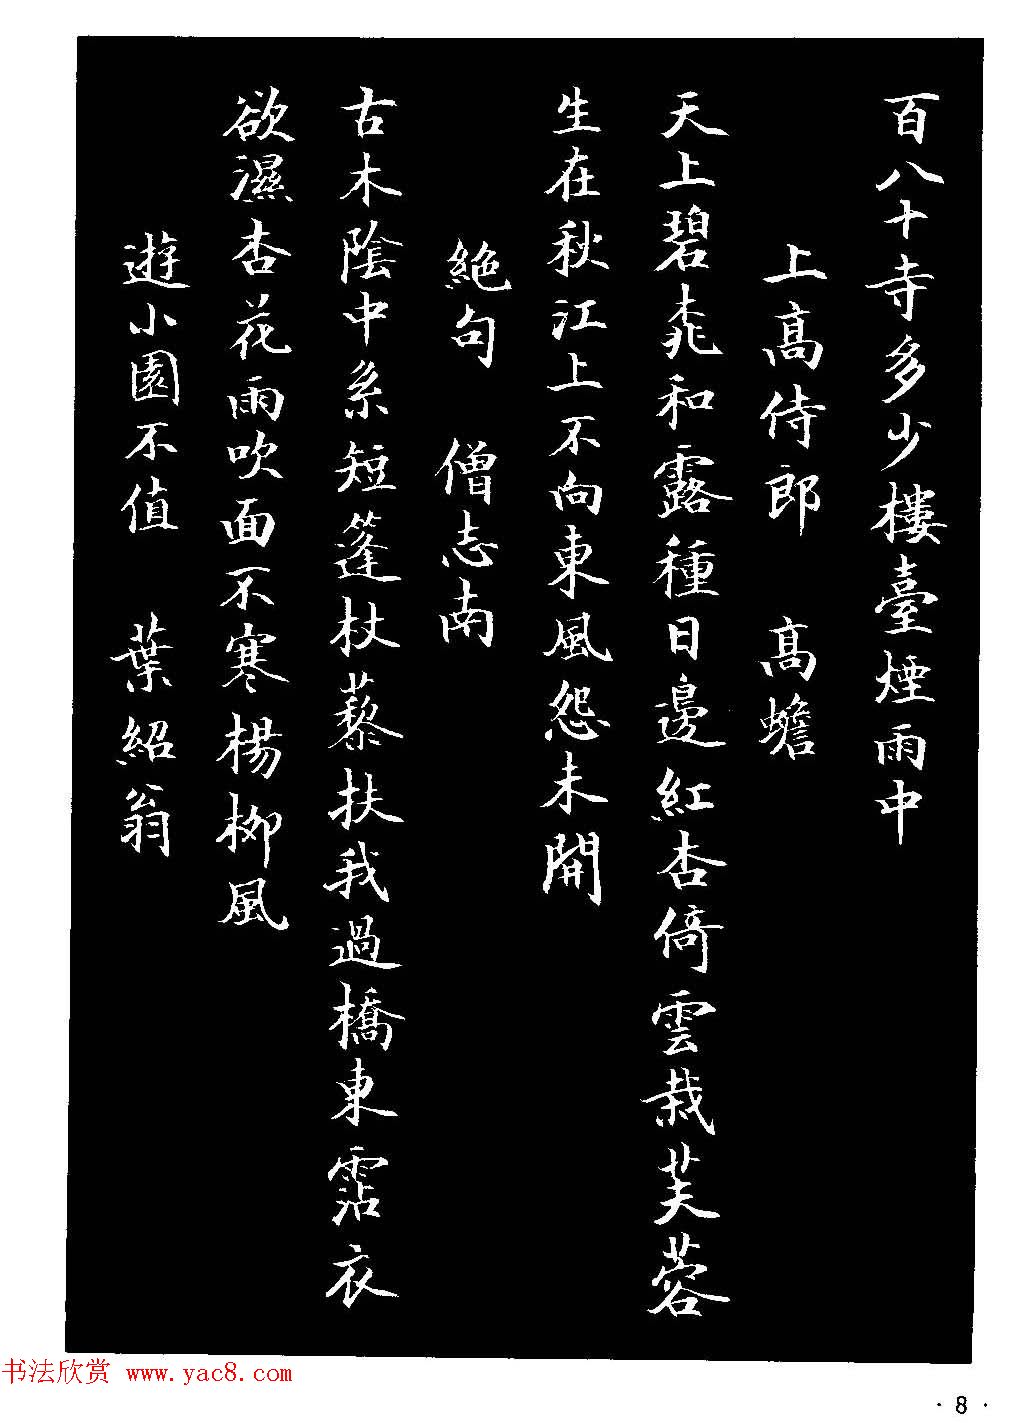 百八十寺多少樓臺煙雨中
上高侍郎 高蟾
天上碧桃和露種日邊紅杏倚雲栽芙蓉
生在秋江上不向東風怨未開
絕句 僧志南
古木陰中系短篷杖藜扶我過橋東霑衣
欲濕杏花雨吹面不寒楊柳風
遊小園不值 葉紹翁
书法欣赏 www.yac8.com
· 8 ·